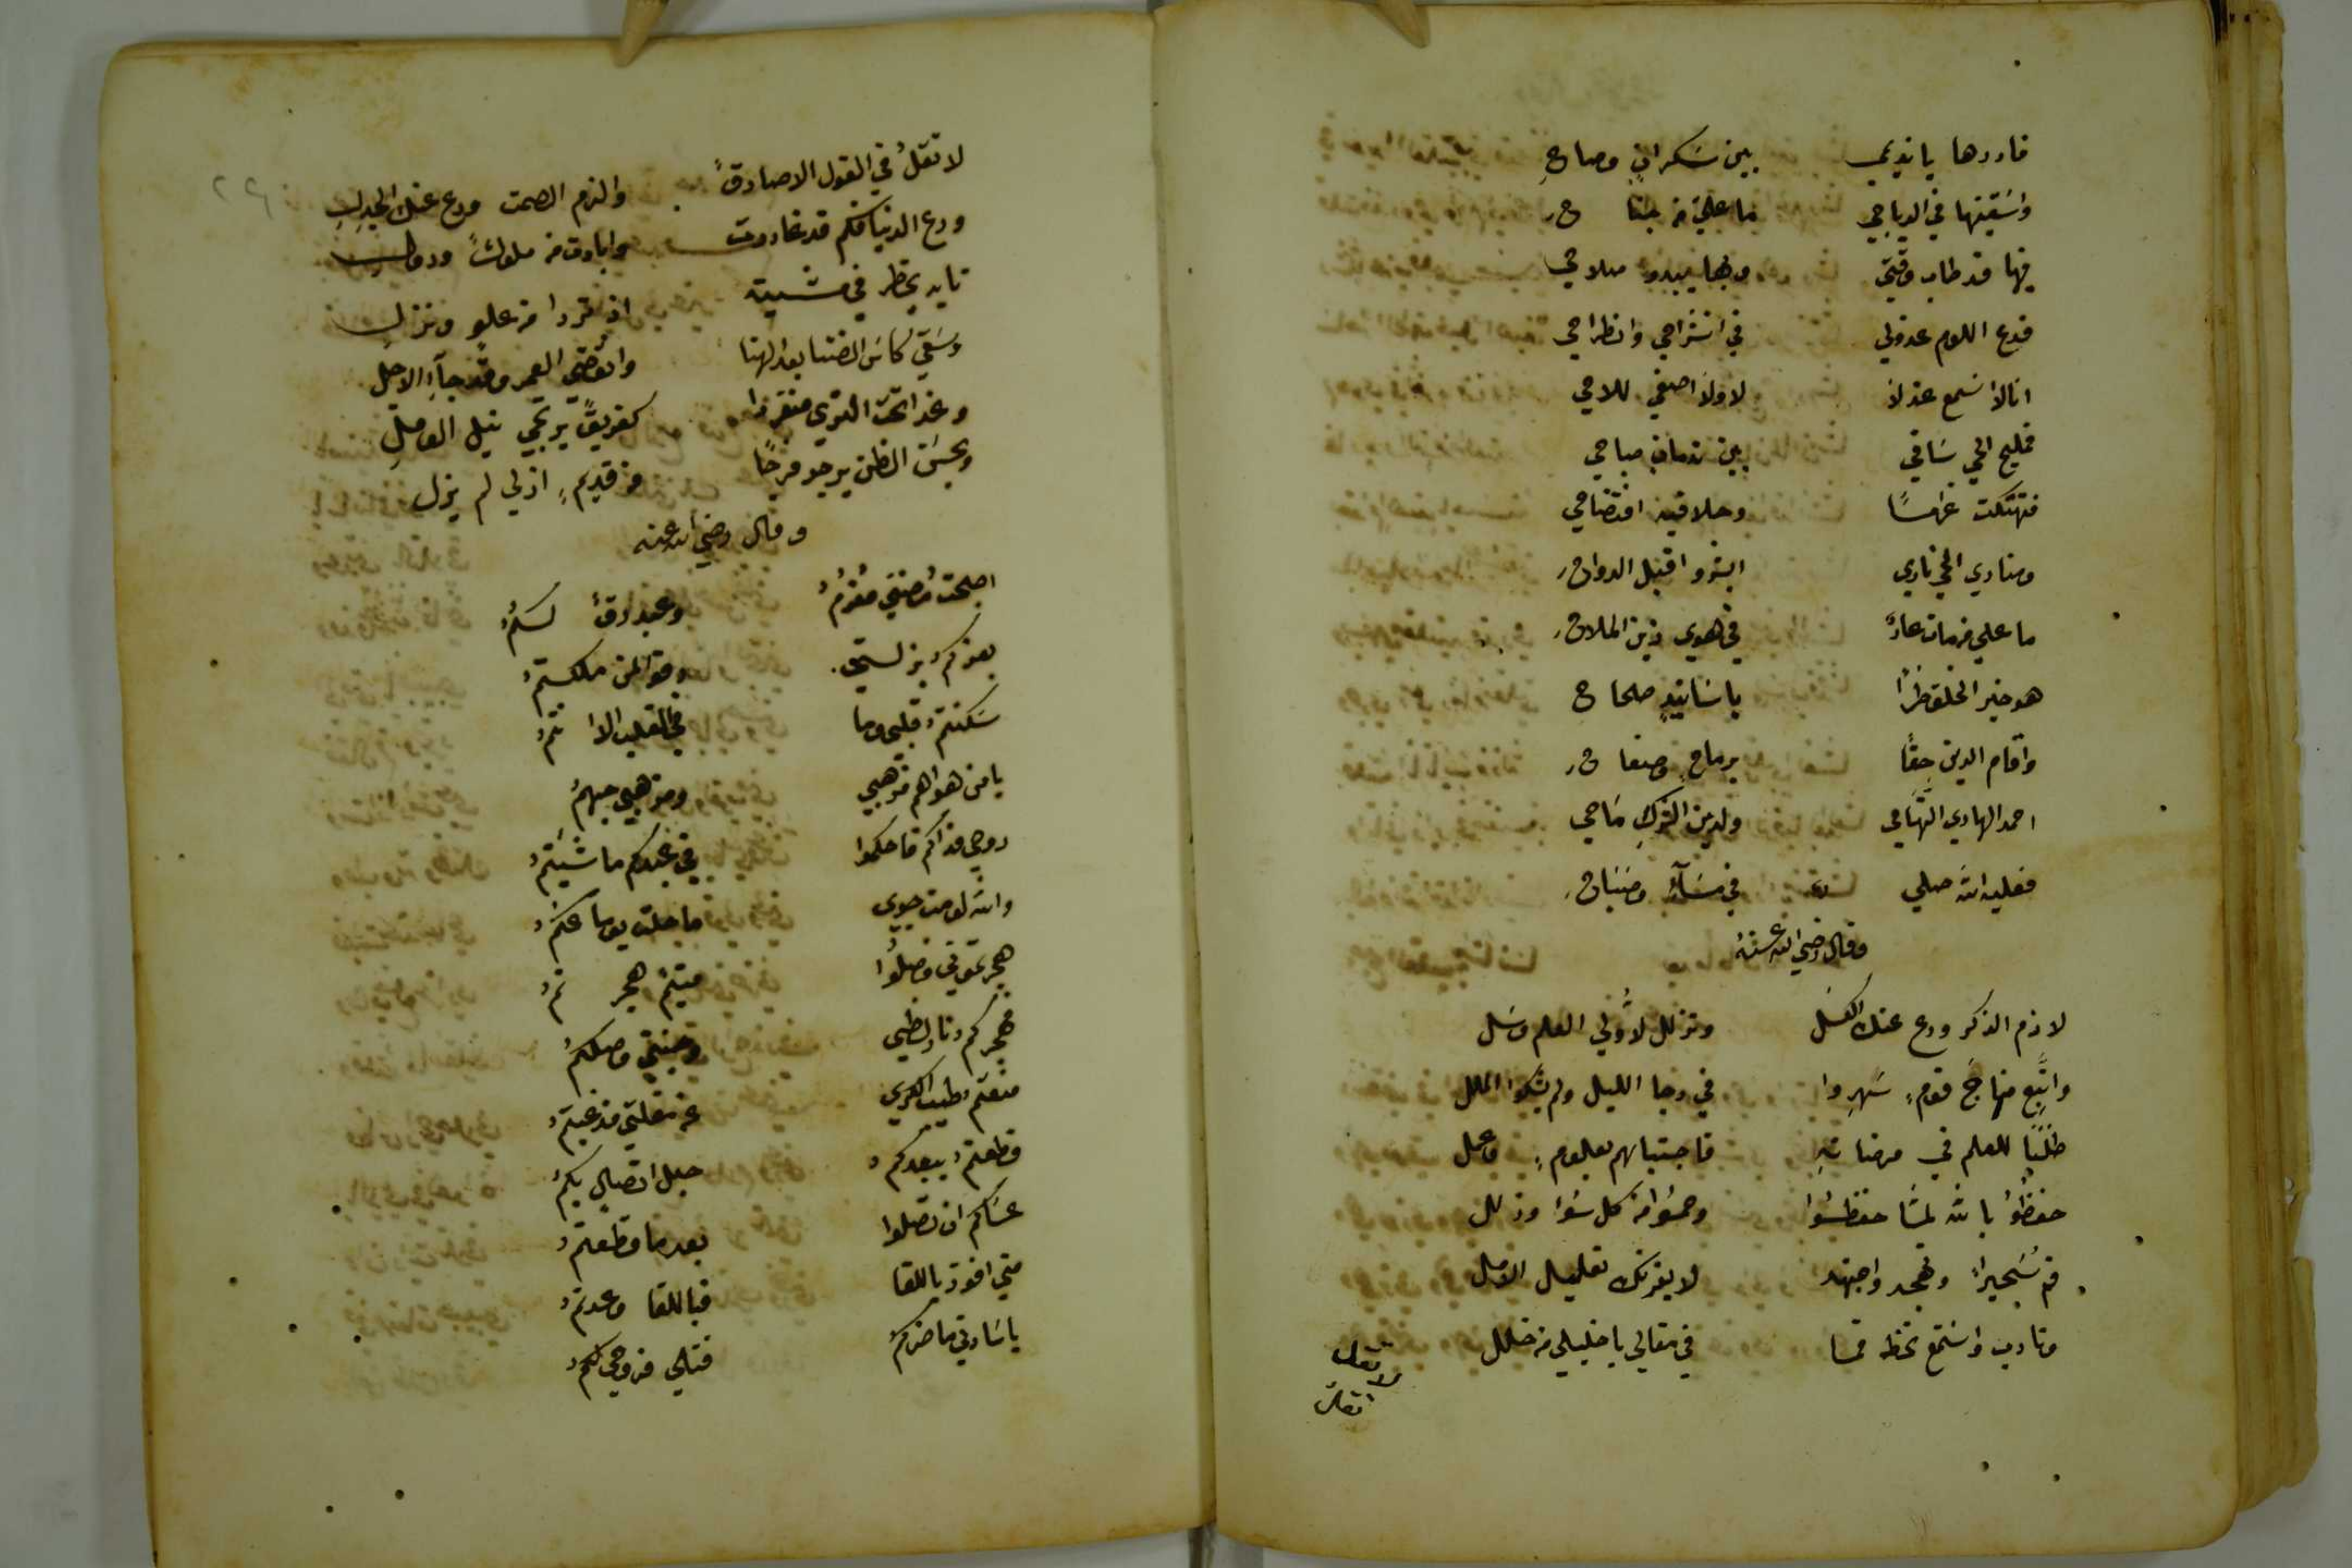 فادرها يا نديمي بين سكران وصاح
واسقينها في الدياجي ما علي من جناح
فيها قد طاب وقتي وبها يبدو صلاحي
فدع اللوم عذولي في انشراحي وانطراحي
انا لا اسمع عذلا لا ولا اصغي للاحي
فمليح الحي ساقي بين ندمان صباحي
فتهتكت غراما وحلا فيه افتضاحي
ومنادي الحي نادي ابشروا قبل الرواح
ما علي من مات عار في هوي زين الملاح
هو خير الخلق طرا باسانيد صحاح
واقام الدين حقا برماح وصفاح
احمد الهادي التهامي ولدين الشرك ماحي
فعليه الله صلي في مساء وصباح
وقال رضي الله عنه
لازم الذكر ودع عنك الكسل وتذلل لاولي العلم وسل
واتبع منهاج قوم سهروا في دجا الليل ولم يشكوا الملل
طلبا للعلم في مرضاته فاجتباهم بعلوم وعمل
حفظوا بالله لما حفظوا وحموا من كل سوء وزلل
قم سحيرا وتهجد واجتهد لا يغرنك تعليل الامل
وتادب واستمع تحظه فما في مقالي يا خليلي من خلل
لا تقل
لا تقل في القول الا صادقا والزم الصمت ودع عنك الجدل
ودع الدنيا فكم قد غادرت وابادت من ملوك ودول
تايه يخطر في مشيته اذ تردا من علو ونزل
وسقي كاس الضنا بعد الهنا وانقضي العمر وقد جاء الاجل
وغدا تحت الثري منفردا كغريق يرتجي نيل الوصل
وبحسن الظن يرجو فرجا من قديم ازلي لم يزل
وقال رضي الله عنه
اصبحت مضني مغرم وعبد رق لكم
بعزكم بذلتي رقوا لمن ملكتم
سكنتم قلبي وما في القلب الا انتم
يا من هواهم مذهبي ومذهبي حبهم
روحي فداكم فاحكموا في عبدكم ما شيتم
والله لو مت جوي ما حلت يوما عنكم
هجرتموني فصلوا متيم هجرتم
فهجركم نار لظي وجنتي وصلكم
منعتم طيب الكري عن مقلتي مذ غبتم
قطعتم ببعدكم حبل اتصالي بكم
عساكم ان تصلوا بعد ما قطعتم
متي افوز باللقا فباللقا وعدتم
يا سادتي ما ضركم